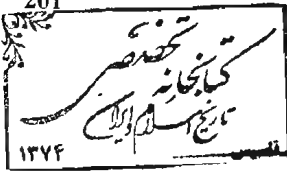 201
کتابخانه تخصصی
تاریخ اسلام و ایران
۱۳۷۴